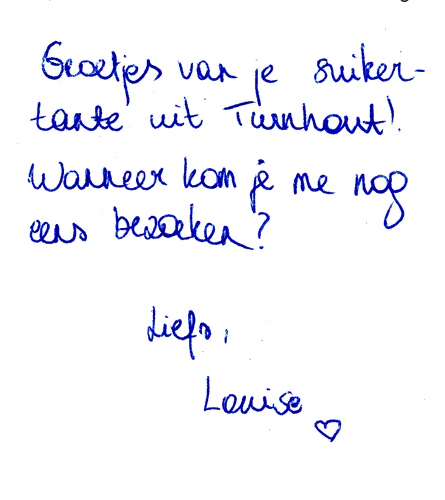 Groetjes van je suiker-
tante uit Turnhout!
Wanneer kom je me nog
eens bezoeken?
Liefs,
Louise